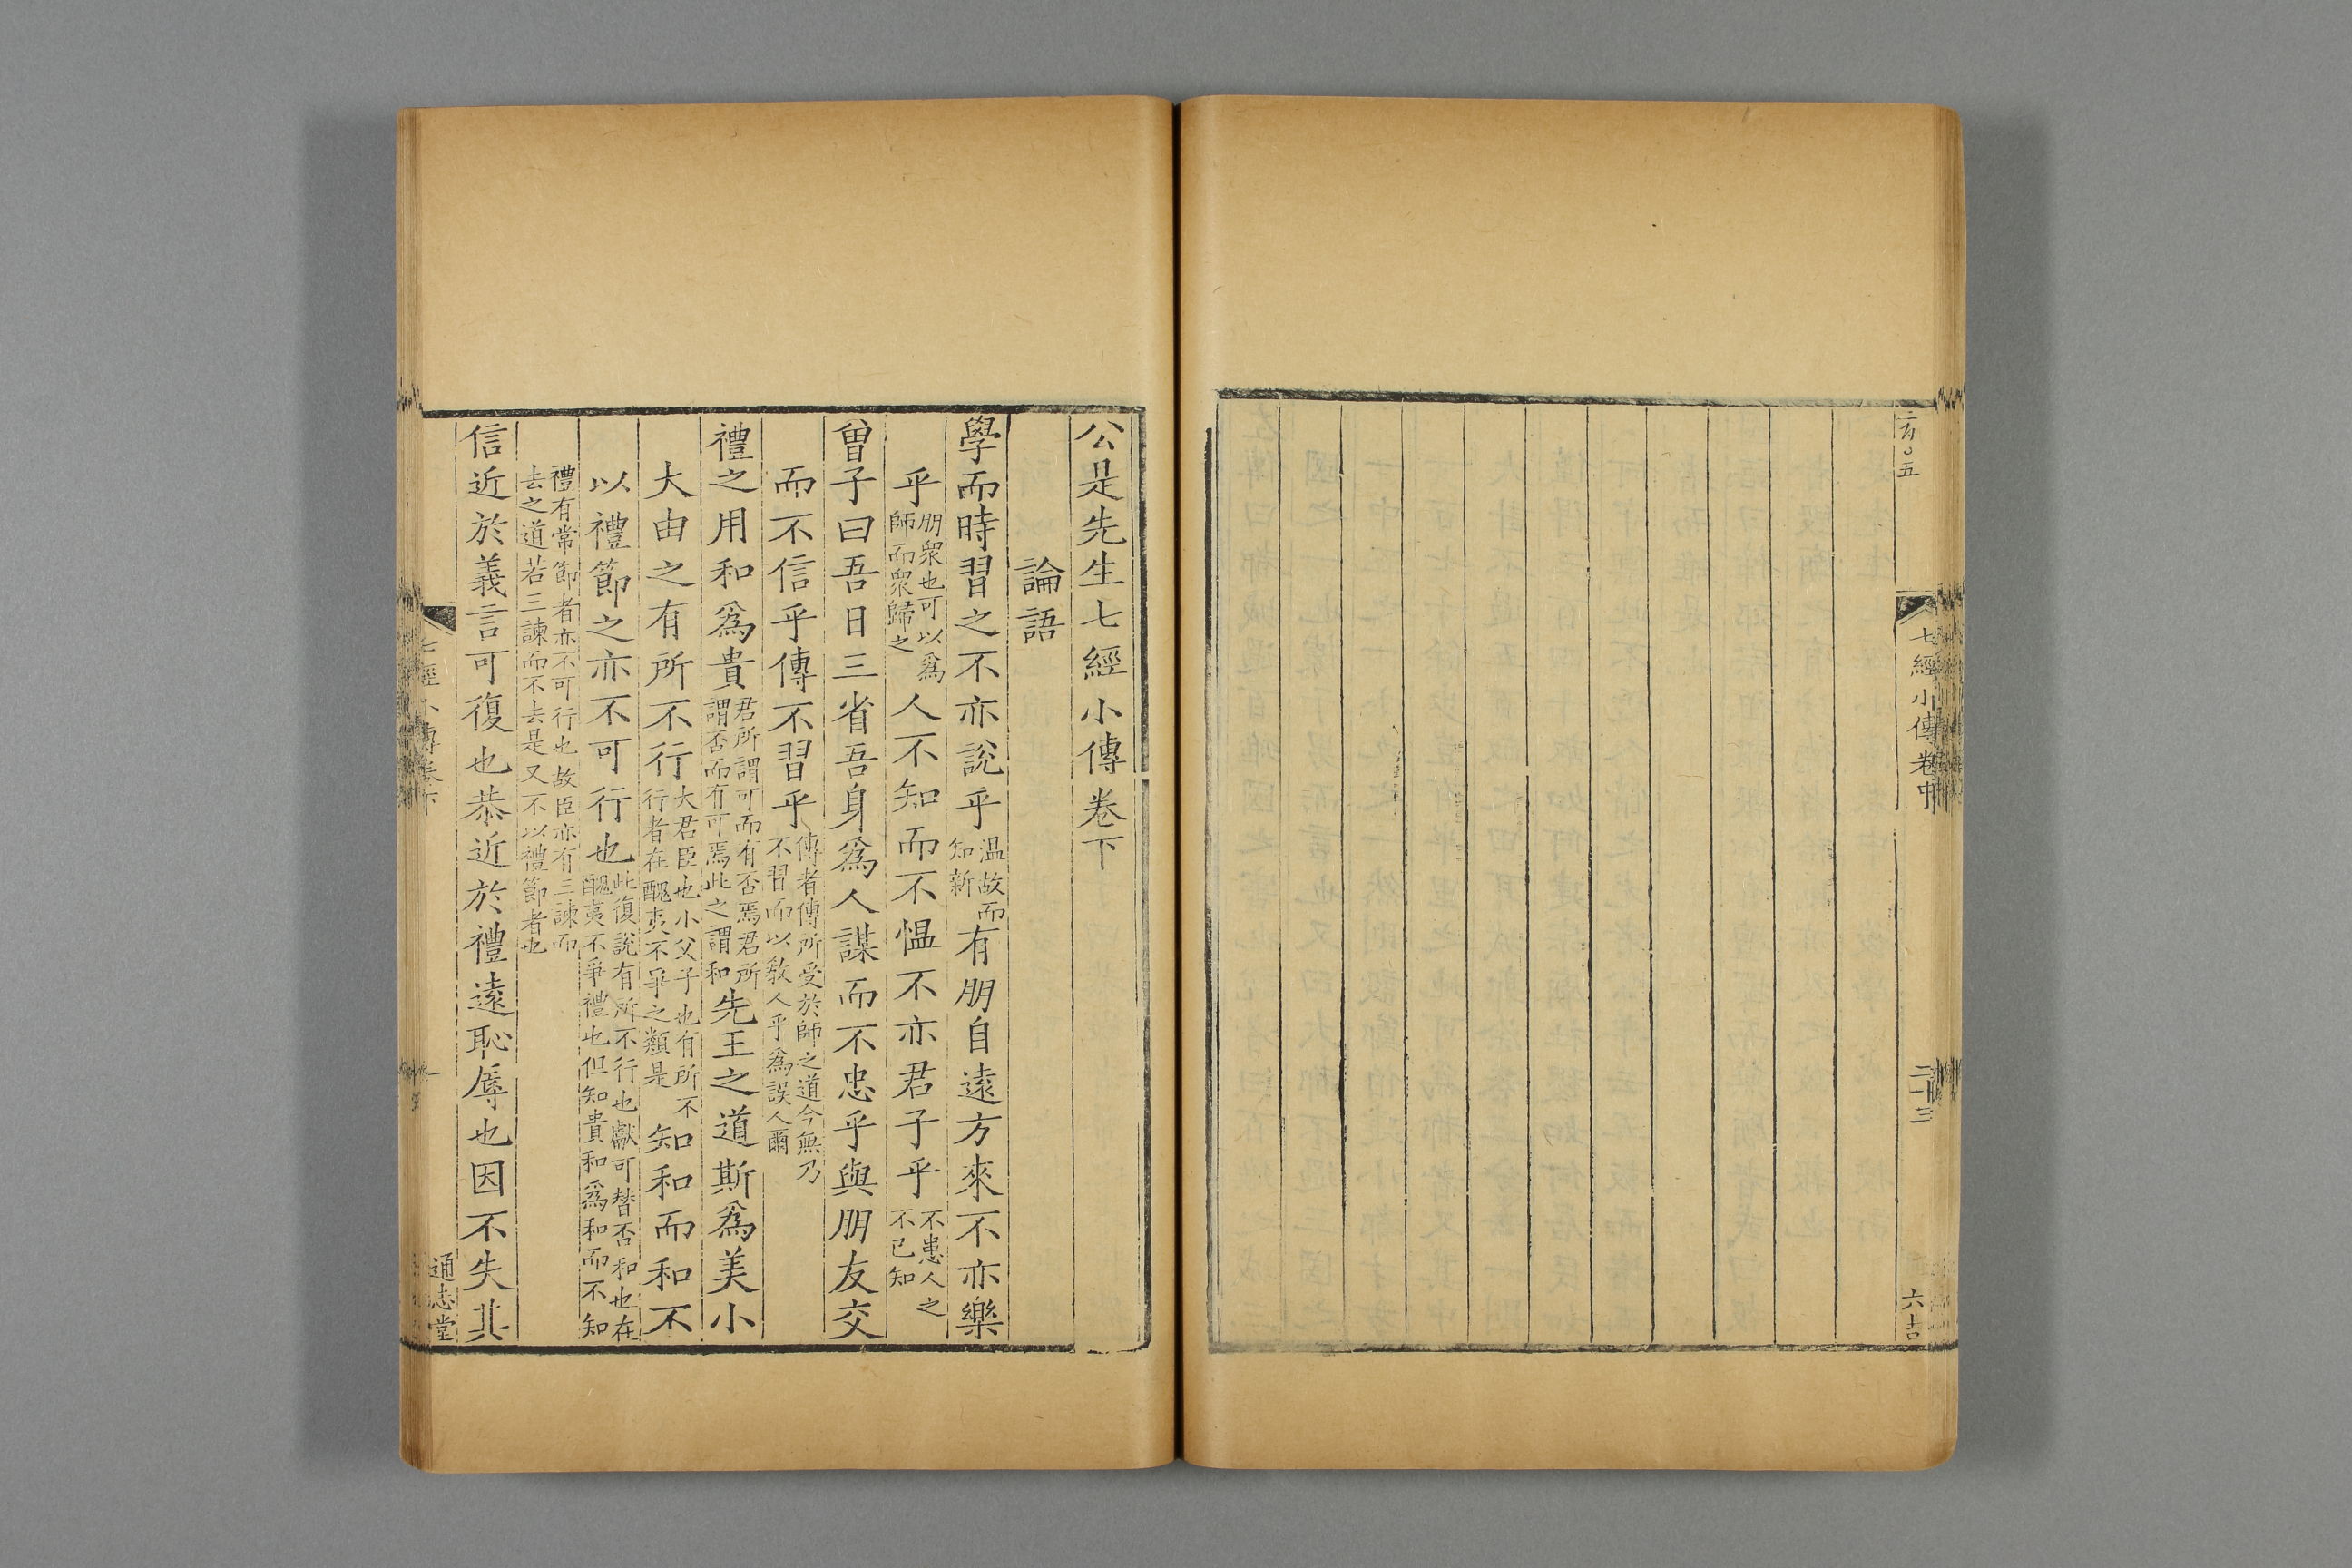 七經小傳卷中
二十三
公是先生七經小傳卷下
論語
學而時習之不亦說乎温故而知新有朋自遠方來不亦樂
乎朋衆也可以爲師而衆歸之人不知而不愠不亦君子乎不患人之不已知
曾子曰吾日三省吾身爲人謀而不忠乎與朋友交
而不信乎傳不習乎傳者傳所受於師之道今無乃不習而以敎人乎爲誤人爾
禮之用和爲貴君所謂可而有否焉君所謂否而有可焉此之謂和先王之道斯爲美小
大由之有所不行大君臣也小父子也有所不行者在醜夷不爭之類是知和而和不
以禮節之亦不可行也此復說有所不行也獻可替否和也在醜夷不爭禮也但知貴和爲和而不知
禮有常節者亦不可行也故臣亦有三諫而去之道若三諫而不去是又不以禮節者也
信近於義言可復也恭近於禮遠恥辱也因不失其
通志堂